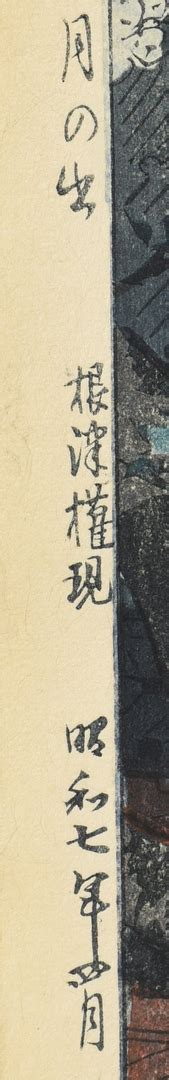 月の出 根津権現 昭和七年四月